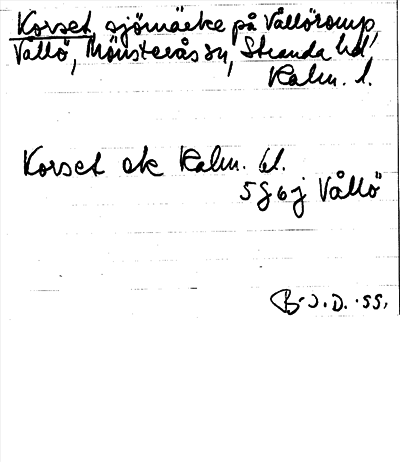 Korset, sjömärke på Vållöromp,
Vållö, Mönsterås sn, Stranda hd
Kalm. l.
Korset ek Kalm. bl.
5g6j Vållö
B.J.D. -55.